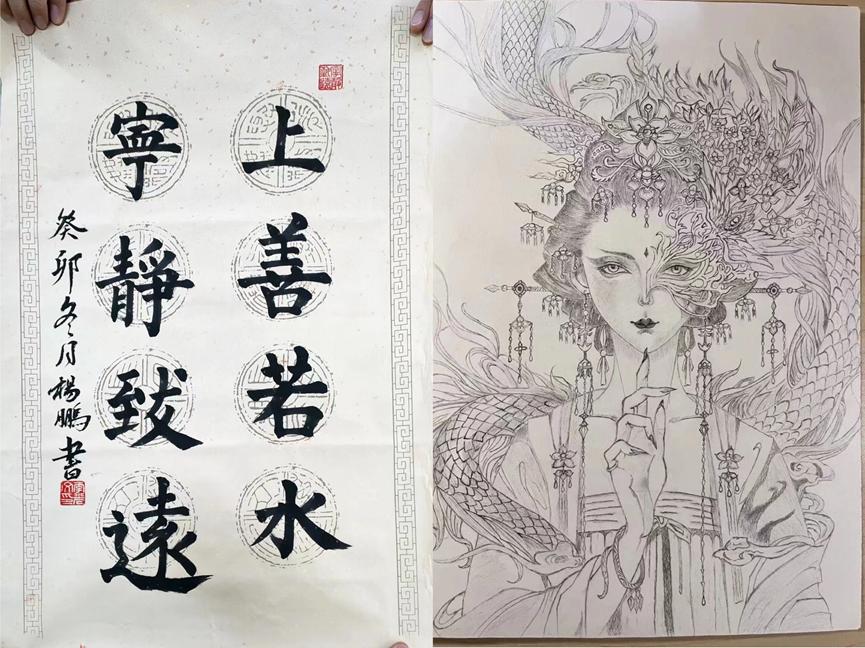 上善若水
寧靜致遠
癸卯冬月楊鵬書